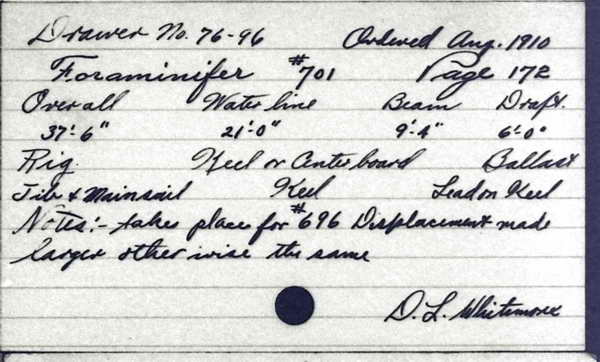 Drawer No. 76-96 Ordered Aug. 1910
Foraminifer #701 Page 172
Over all Water line Beam Draft.
37'-6" 21'-0" 9'-4" 6'-0"
Rig Keel or Centerboard Ballast
Jib & Mainsail Keel Lead on Keel
Notes:- takes place for #696 Displacement made
larger other wise the same
D. L. Whitmore